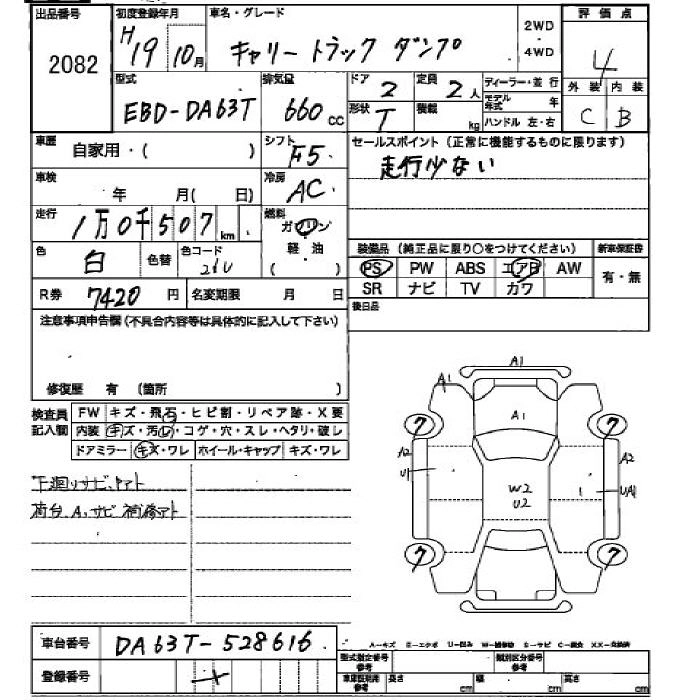 出品番号 初度登録年月 車名・グレード 評価点
2082 H19 10月 キャリートラック ダンプ 2WD・4WD 4
型式 排気量 ドア 2 定員 2人 ディーラー・並行 外装 内装
EBD-DA63T 660cc 形状 T 積載 kg モデル年式 年 C B
ハンドル 左・右
車歴 自家用・( ) シフト F5 セールスポイント(正常に機能するものに限ります)
走行少ない
車検 年 月(日) 冷房 AC
走行 1万0千507km 燃料 ガソリン
軽・油
( )
色 白 色替 色コード 26U 装備品(純正品に限り〇をつけてください) 新車保証書
PS PW ABS エアB AW 有・無
R券 7420円 名変期限 月 日 SR ナビ TV カワ
注意事項申告欄(不具合内容等は具体的に記入して下さい) 後日品
修復歴 有 (箇所 )
検査員記入欄 FW キズ・飛石・ヒビ割・リペア跡・X要
内装 キズ・汚れ・コゲ・穴・スレ・ヘタリ・破レ
ドアミラー キズ・ワレ ホイール・キャップ キズ・ワレ
下廻りサビ、アト
荷台、A、サビ 補修アト
A1
A1
A1
7 7
A2 A2
U1 W2 U2 UA1
7 7
車台番号 DA63T-528616
A-キズ E-エクボ U-凹み W-補修跡 S-サビ C-腐食 XX-交換済
登録番号
型式指定番号 参考 類別区分番号 参考
車庫証明用 参考 長さ cm 幅 cm 高さ cm